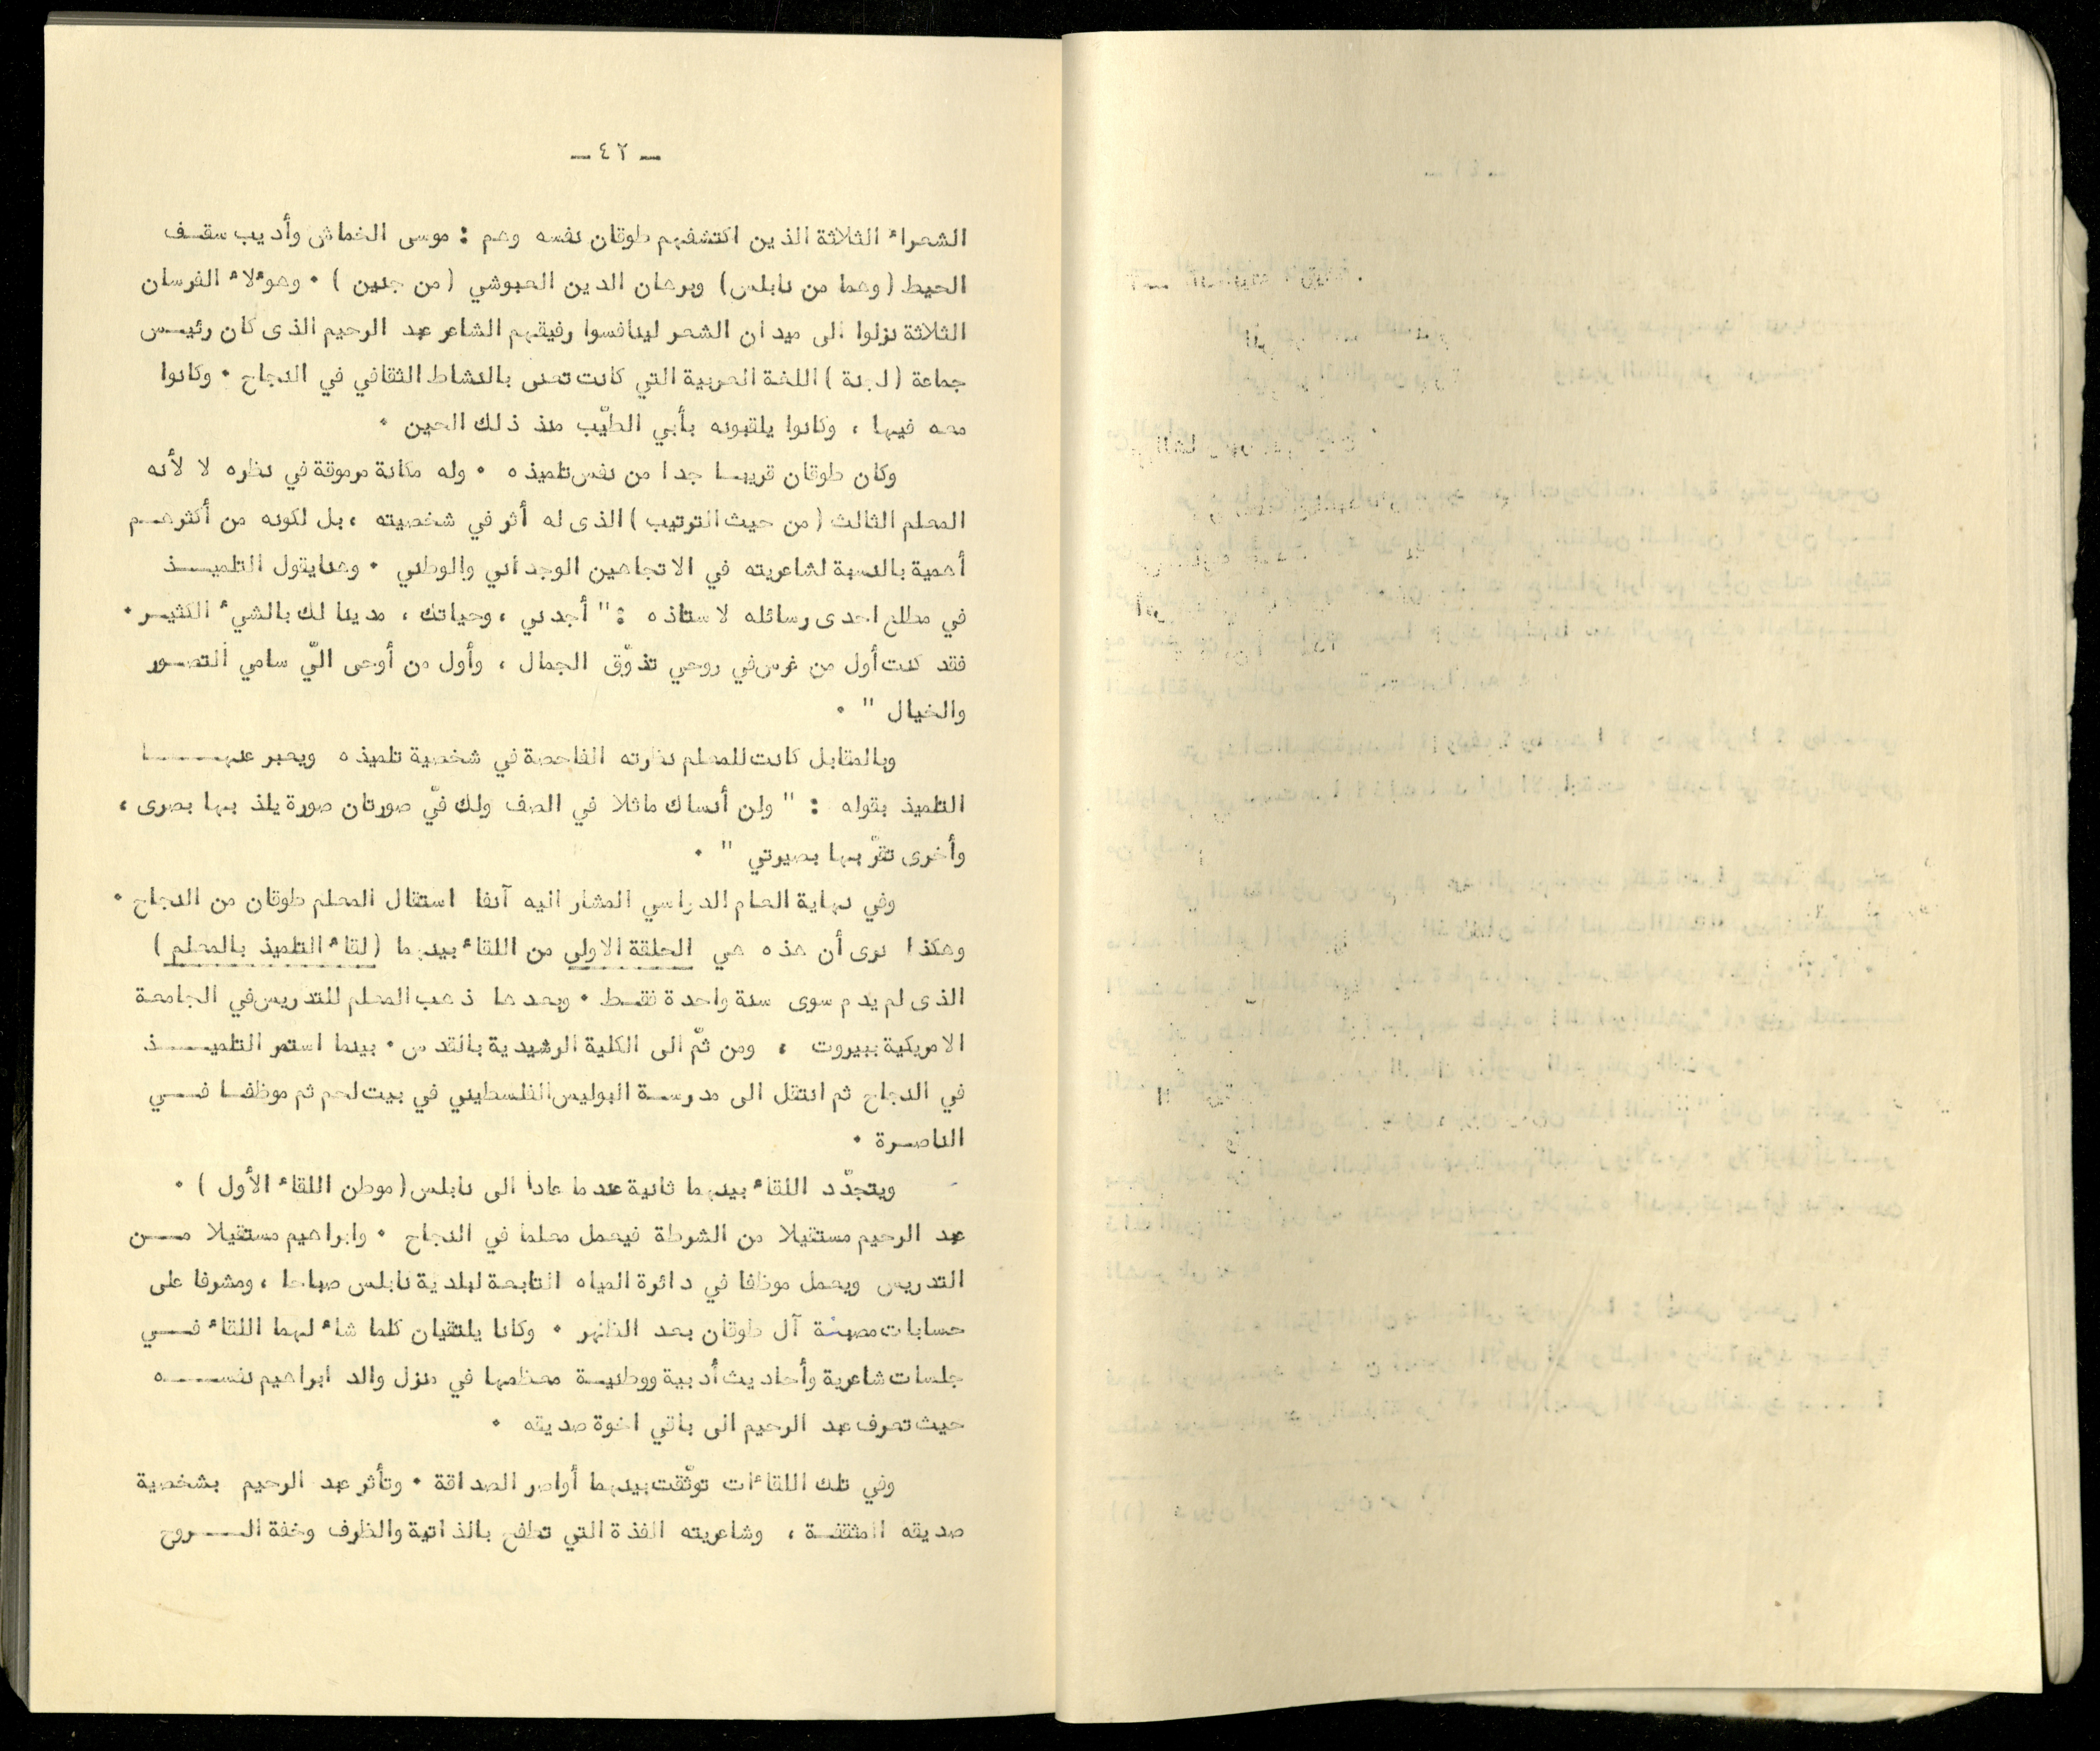 ـ ٤٢ ـ
الشعراء الثلاثة الذين اكتشفهم طوقان نفسه وهم : موسى الخماش وأديب سقف
الحيط (وهما من نابلس) وبرهان الدين العبوشي (من جنين ) ٠ وهؤلاء الفرسان
الثلاثة نزلوا الى ميدان الشعر لينافسوا رفيقهم الشاعر عبد الرحيم الذى كان رئيس
جماعة (لجنة ) اللغة العربية التي كانت تعنى بالنشاط الثقافي في النجاح ٠ وكانوا
معه فيها ، وكانوا يلقبونه بأبي الطيّب منذ ذلك الحين ٠
وكان طوقان قريبا جدا من نفس تلميذه ٠ وله مكانة مرموقة في نظره لا لأنه
المعلم الثالث (من حيث الترتيب ) الذى له أثر في شخصيته ، بل لكونه من أكثرهم
أهمية بالنسبة لشاعريته في الاتجاهين الوجداني والوطني ٠ وهنا يقول التلميذ
في مطلع احدى رسائله لاستاذه : " أجدني ، وحياتك ، مدينا لك بالشيء الكثير ٠
فقد كنت أول من غرس في روحي تذوّق الجمال ، وأول من أوحى اليّ سامي التصور
والخيال " ٠
وبالمقابل كانت للمعلم نظرته الفاحصة في شخصية تلميذه ويعبر عنها
التلميذ بقوله : " ولن أنساك ماثلا في الصف ولك فيّ صورتان صورة يلذ بها بصرى ،
وأخرى تقرّ بها بصيرتي " ٠
وفي نهاية العام الدراسي المشار اليه آنفا استقال المعلم طوقان من النجاح ٠
وهكذا نرى أن هذه هي الحلقة الاولى من اللقاء بينهما (لقاء التلميذ بالمعلم )
الذى لم يدم سوى سنة واحدة فقط ٠ وبعدها ذهب المعلم للتدريس في الجامعة
الامريكية ببيروت ، ومن ثمّ الى الكلية الرشيدية بالقدس ٠ بينما استمر التلميذ
في النجاح ثم انتقل الى مدرسة البوليس الفلسطيني في بيت لحم ثم موظفا في
الناصرة ٠
ويتجدّد اللقاء بينهما ثانية عندما عادا الى نابلس (موطن اللقاء الأول ) ٠
عبد الرحيم مستقيلا من الشرطة فيعمل معلما في النجاح ٠ وابراهيم مستقيلا من
التدريس ويعمل موظفا في دائرة المياه التابعة لبلدية نابلس صباحا ، ومشرفا على
حسابات مصبنة آل طوقان بعد الظهر ٠ وكانا يلتقيان كلما شاء لهما اللقاء في
جلسات شاعرية وأحاديث أدبية ووطنية معظمها في منزل والد ابراهيم نفسه
حيث تعرف عبد الرحيم الى باقي اخوة صديقه ٠
وفي تلك اللقاءات توثّقت بينهما أواصر الصداقة ٠ وتأثر عبد الرحيم بشخصية
صديقه المثقفة ، وشاعريته الفذة التي تطفح بالذاتية والظرف وخفة الروح